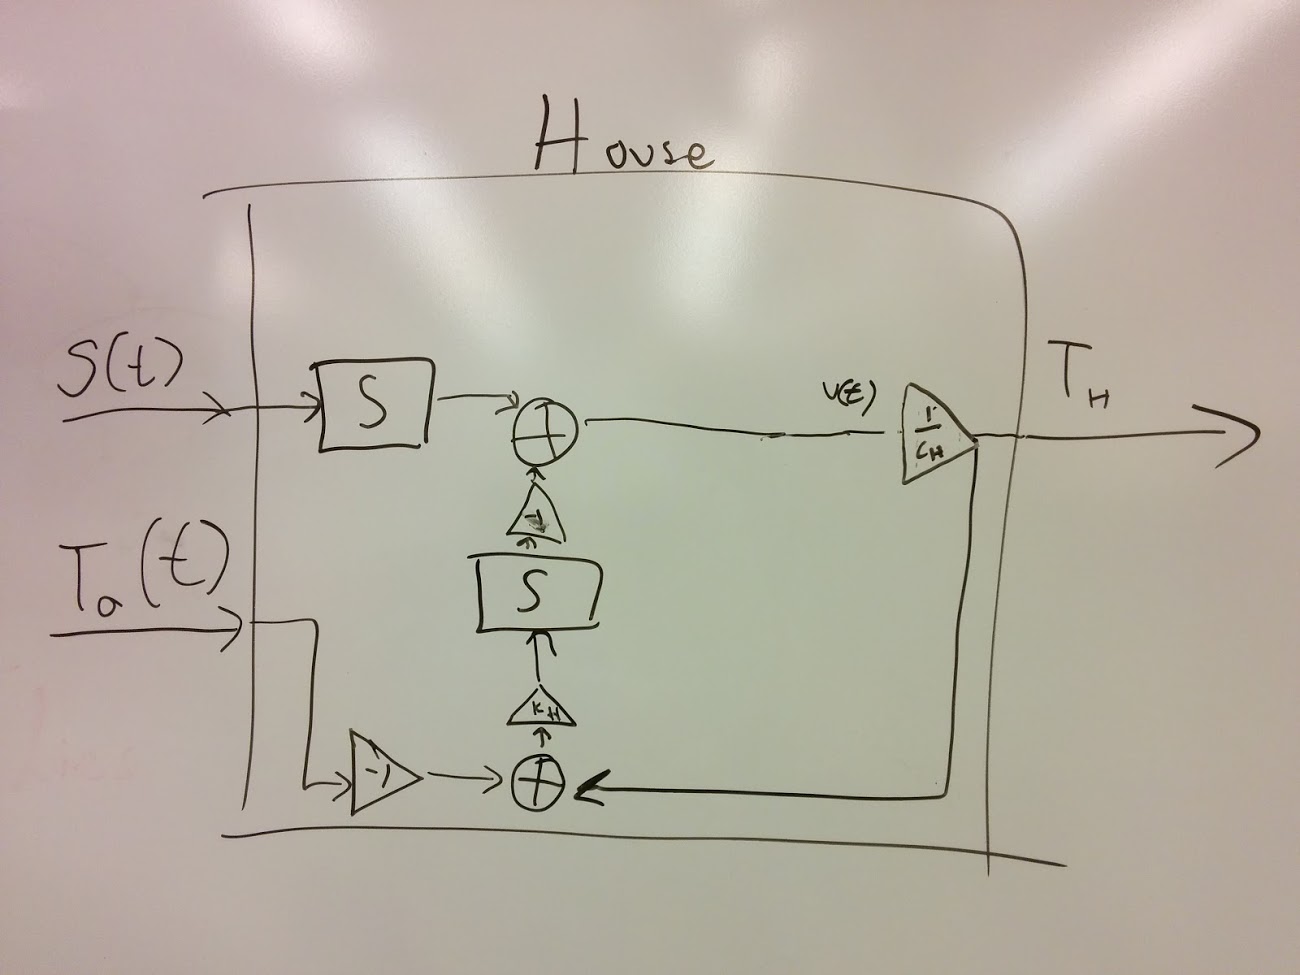 House
S(t)
S
V(t)
1/C_H
T_H
-1
T_a(t)
S
K_H
-1
+